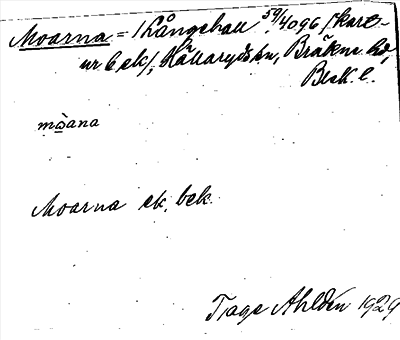 Moarna = 1 Långehall 50/4096 /kart-
ur 6 ek/, Hällaryds sn, Bräkne hd,
Blek. l.
mòana
Moarna ek. bek.
Tage Ahldén 1929